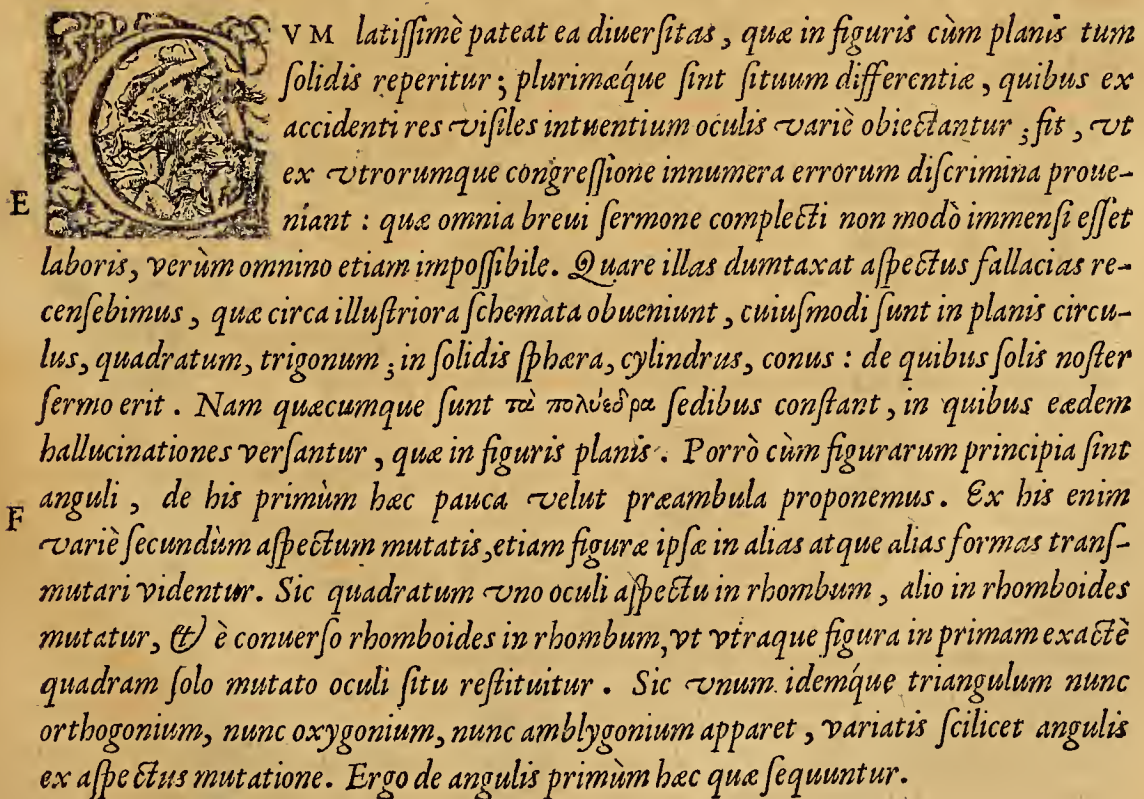 CVM latiſſimè pateat ea diuerſitas, quæ in figuris cùm planis tum
ſolidis reperitur; plurimæq́ue ſint ſituum differentiæ, quibus ex
accidenti res viſiles intuentium oculis variè obiectantur; fit, vt
ex vtrorumque congreſſione innumera errorum diſcrimina proue-
E niant: quæ omnia breui ſermone complecti non modò immenſi eſſet
laboris, verùm omnino etiam impoſſibile. Quare illas dumtaxat aſpectus fallacias re-
cenſebimus, quæ circa illuſtriora ſchemata obueniunt, cuiuſmodi ſunt in planis circu-
lus, quadratum, trigonum; in ſolidis ſphæra, cylindrus, conus: de quibus ſolis noſter
ſermo erit. Nam quæcumque ſunt τὰ πολύεδρα ſedibus conſtant, in quibus eædem
hallucinationes verſantur, quæ in figuris planis. Porrò cùm figurarum principia ſint
F anguli, de his primùm hæc pauca velut præambula proponemus. Ex his enim
variè ſecundùm aſpectum mutatis, etiam figuræ ipſæ in alias atque alias formas tranſ-
mutari videntur. Sic quadratum vno oculi aſpectu in rhombum, alio in rhomboides
mutatur, & è conuerſo rhomboides in rhombum, vt vtraque figura in primam exactè
quadram ſolo mutato oculi ſitu reſtituitur. Sic vnum idemq́ue triangulum nunc
orthogonium, nunc oxygonium, nunc amblygonium apparet, variatis ſcilicet angulis
ex aſpectus mutatione. Ergo de angulis primùm hæc quæ ſequuntur.